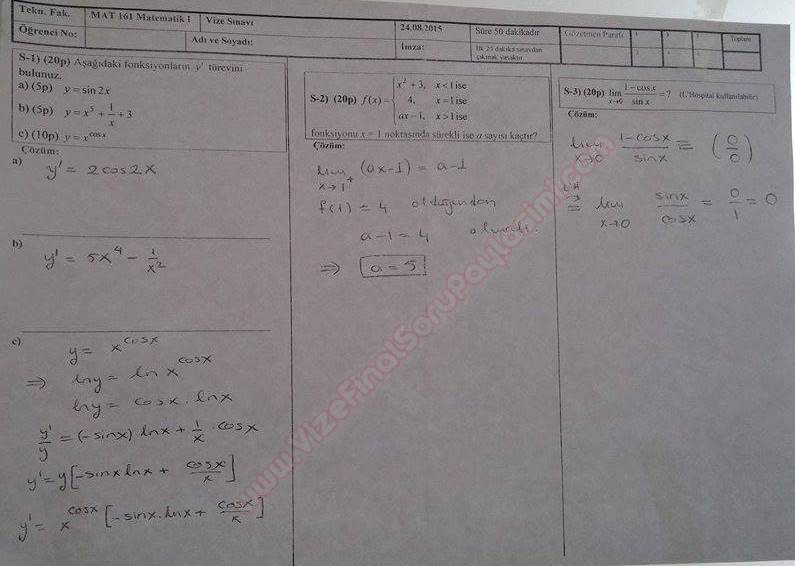 Tekn. Fak.
MAT 161 Matematik I
Vize Sınavı
24.08.2015
Süre 50 dakikadır
Gözetmen Parafı
1
2
3
Toplam
Öğrenci No:
Adı ve Soyadı:
İmza:
İlk 25 dakika sınavdan
çıkmak yasaktır
S-1) (20p) Aşağıdaki fonksiyonların y' türevini
bulunuz.
a) (5p) y = sin 2x
b) (5p) y = x⁵ + 1/x + 3
c) (10p) y = x^cos x
Çözüm:
a)
y' = 2cos2x
b)
y' = 5x⁴ - 1/x²
c)
y = x^cosx
⇒ lny = ln x^cosx
lny = cosx . lnx
y'/y = (-sinx) lnx + 1/x . cosx
y' = y[-sinx lnx + cosx/x]
y' = x^cosx [-sinx.lnx + cosx/x]
S-2) (20p) f(x) = { x² + 3, x < 1 ise
4, x = 1 ise
ax - 1, x > 1 ise
fonksiyonu x = 1 noktasında sürekli ise a sayısı kaçtır?
Çözüm:
lim x→1⁺ (ax-1) = a-1
f(1) = 4 olduğundan
a-1 = 4 olmalı.
⇒ a = 5
S-3) (20p) lim x→0 1 - cos x / sin x = ? (L'Hospital kullanılabilir)
Çözüm:
lim x→0 1-cosx / sinx = (0/0)
L'H = lim x→0 sinx / cosx = 0/1 = 0
www.VizeFinalSoruPaylasimi.com